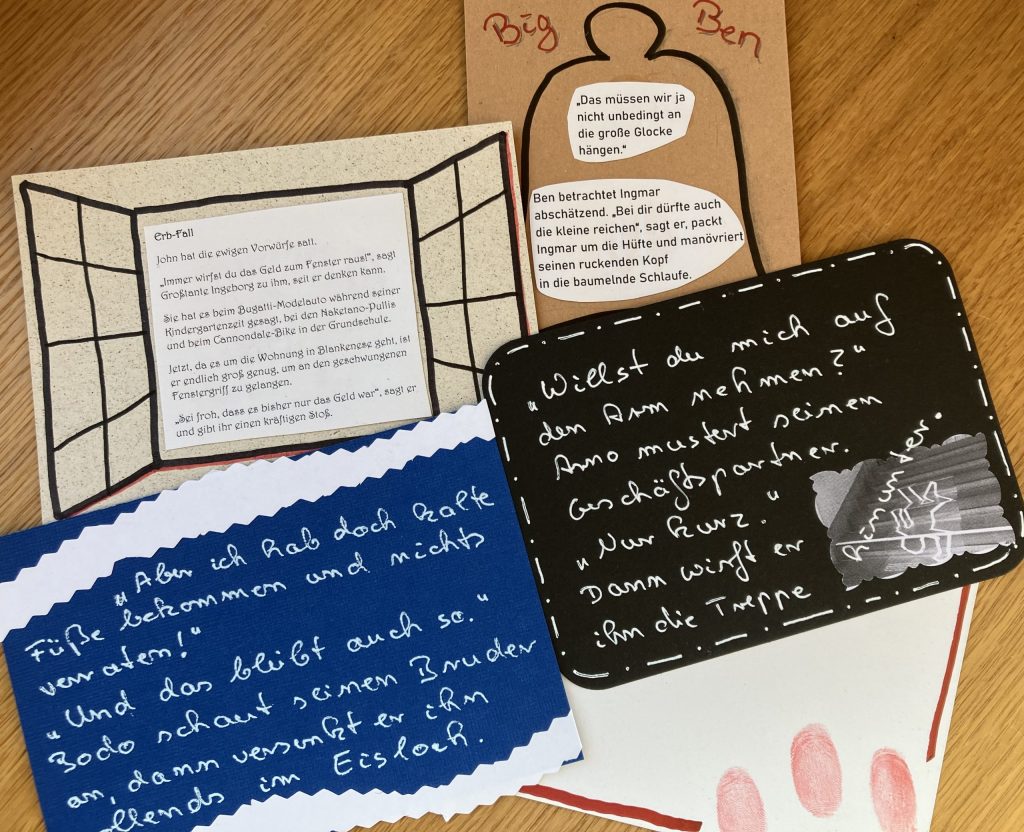 Big Ben
„Das müssen wir ja
nicht unbedingt an
die große Glocke
hängen.“
Ben betrachtet Ingmar
abschätzend. „Bei dir dürfte auch
die kleine reichen“, sagt er, packt
Ingmar um die Hüfte und manövriert
seinen ruckenden Kopf
in die baumelnde Schlaufe.
Erb-Fall
John hat die ewigen Vorwürfe satt.
„Immer wirfst du das Geld zum Fenster raus!“, sagt
Großtante Ingeborg zu ihm, seit er denken kann.
Sie hat es beim Bugatti-Modelauto während seiner
Kindergartenzeit gesagt, bei den Naketano-Pullis
und beim Cannondale-Bike in der Grundschule.
Jetzt, da es um die Wohnung in Blankenese geht, ist
er endlich groß genug, um an den geschwungenen
Fenstergriff zu gelangen.
„Sei froh, dass es bisher nur das Geld war“, sagt er
und gibt ihr einen kräftigen Stoß.
„Willst du mich auf
den Arm nehmen?“
Arno mustert seinen
Geschäftspartner.
„Nur kurz.“
Dann wirft er
ihn die Treppe
hinunter.
„Aber ich hab doch kalte
Füße bekommen und nichts
verraten!“
„Und das bleibt auch so.“
Bodo schaut seinen Bruder
an, dann versenkt er ihn
vollends im Eisloch.